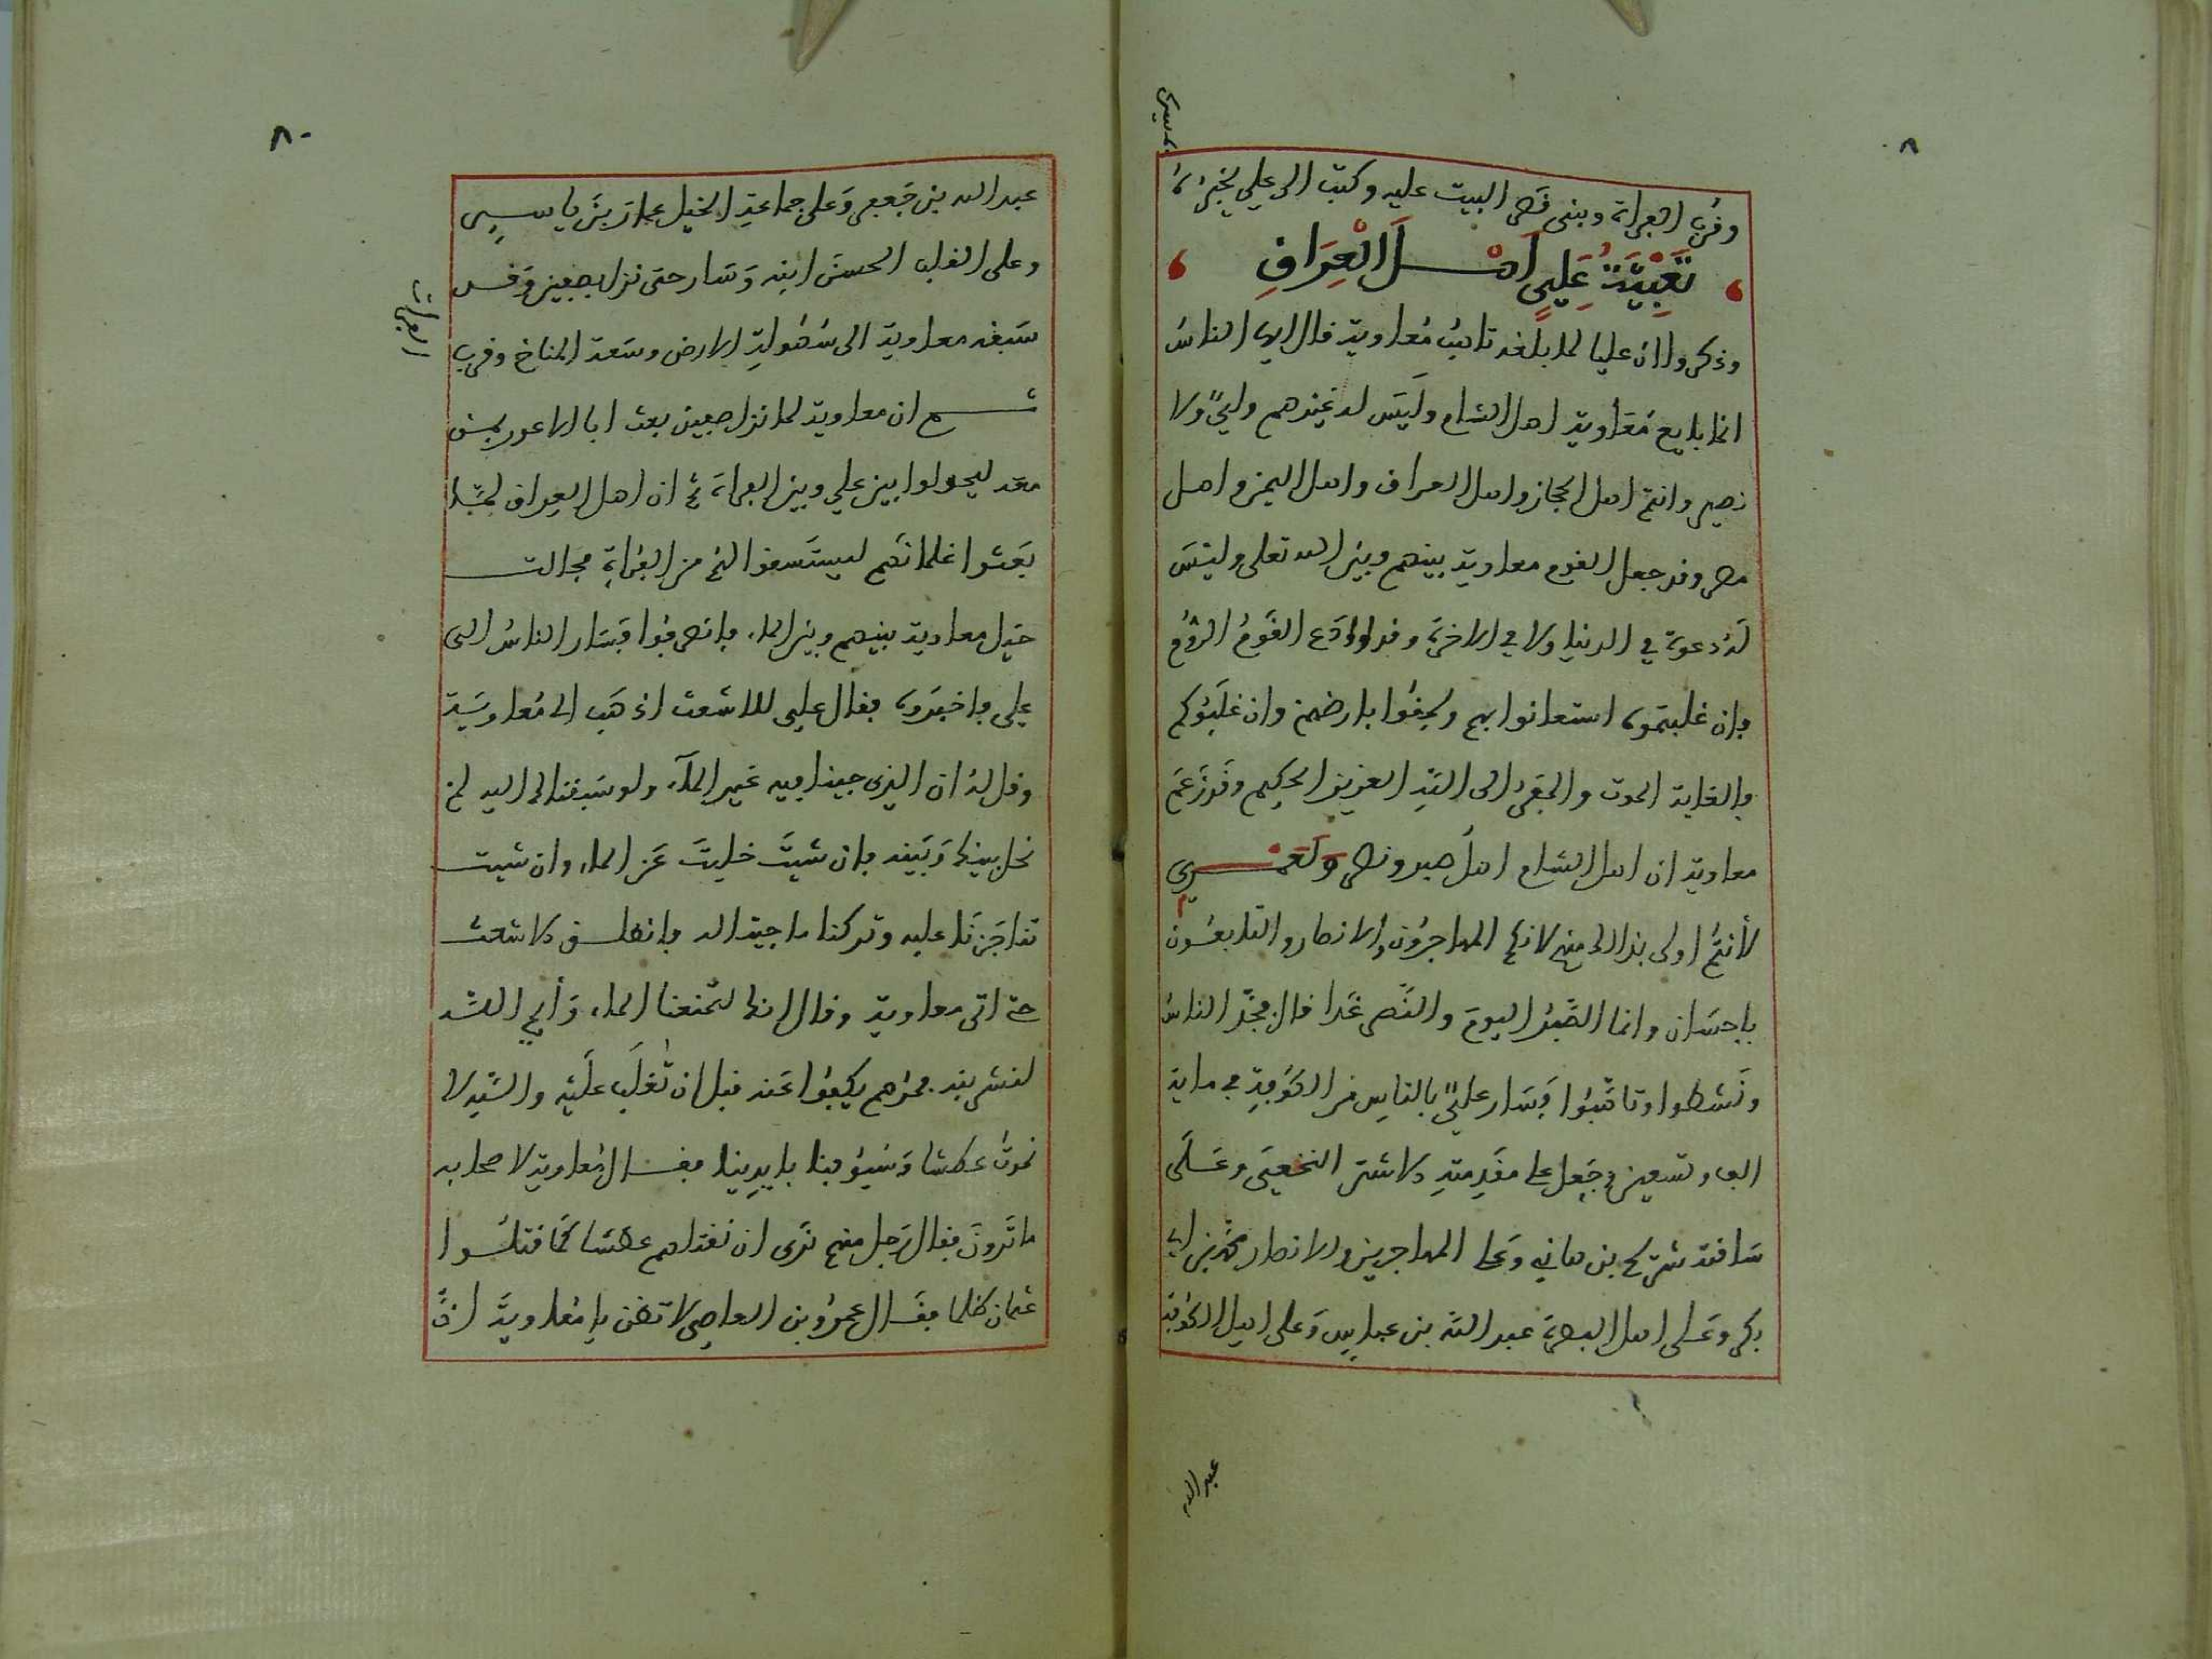 وقرب الفراة وبنى قصر البيت عليه وكتب الى علي يخبره
تَعْبِيَةُ عَلِيٍ اَهْلَ الْعِرَاقِ
وذكروا ان عليا لما بلغه تاهب معاوية قال ايها الناس
انما بايع معاوية اهل الشام وليس له غيرهم ولي ولا
نصير وانتم اهل الحجاز واهل العراق واهل اليمن واهل
مصر وقد جعل القوم معاوية بينهم وبين الله تعلى وليس
له دعوة في الدنيا ولا في الاخرة وقد وادع القوم الروم
فان غلبتموه استعانوا بهم ولحقوا بارضهم وان غلبوكم
فالغاية الموت والمفر الى الله العزيز الحكيم وقد زعم
معاوية ان اهل الشام اهل صبر ونصر ولعمري
لأنتم اولى بذالك منهم لانكم المهاجرون والانصار والتابعون
باحسان وانما الصبر اليوم والنصر غدا قال فجد الناس
ونشطوا وتاهبوا فسار علي بالناس من الكوفة في ماية
الف وتسعين وجعل على مقدمته الاشتر النخعي وعلى
ساقته شريح بن هانئ وعلى المهاجرين والانصار محمد بن ابي
بكر وعلى اهل البصرة عبد الله بن عباس وعلى اهل الكوفة
عبد الله
٨٠
عبد الله بن جعفر وعلى جماعة الخيل عمار بن ياسر
وعلى القلب الحسن ابنه وسار حتى نزل بصفين وقد
سبقه معاوية الى سهولة الارض وسعة المناخ وقرب
الفرات
ثم ان معاوية لما نزل صفين بعث ابا الاعور بمن
معه ليحولوا بين علي وبين الفراة ثم ان اهل العراق لما
بعثوا غلمانهم ليستسقوا لهم من الفراة فحالت
خيل معاوية بينهم وبين الماء فانصرفوا فسار الناس الى
علي فاخبروه فقال علي للاشعث اذهب الى معاوية
وقل له ان الذي جينا فيه غير الماء ولو سبقناك اليه لم
نحل بينك وبينه فان شيت خليت عن الماء وان شيت
تناجزنا عليه وتركنا ما جينا له فانطلق الاشعث
حتى اتى معاوية وقال انك لتمنعنا الماء وأيم الله
لنشربنه فمرهم يكفوا عنه قبل ان نغلب عليه والله لا
نموت عطشا وسيوفنا بايدينا فقال معاوية لاصحابه
ما ترون فقال رجل منهم نرى ان نقتلهم عطشا كما قتلوا
عثمان ظلما فقال عمرو بن العاصي لا تظن يا معاوية ان